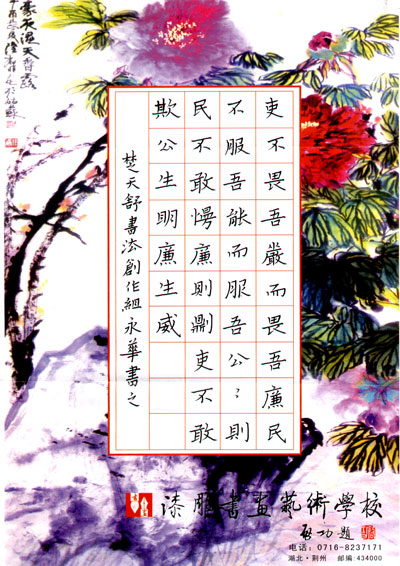 吏不畏吾嚴而畏吾廉民
不服吾能而服吾公〻則
民不敢慢廉則吏不敢
欺公生明廉生威
楚天舒書法創作組永華書之
漆雕書畫藝術學校
啓功題
电话：0716-8237171
湖北·荆州 邮编：434000